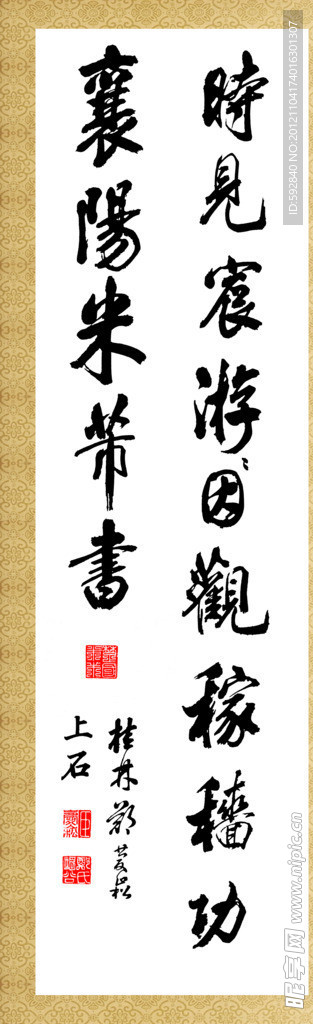 時見宸游因觀稼穡功
襄陽米芾書
桂林鄭
上石
ID:592840 NO:20121104174016301307
昵享网 www.nipic.cn